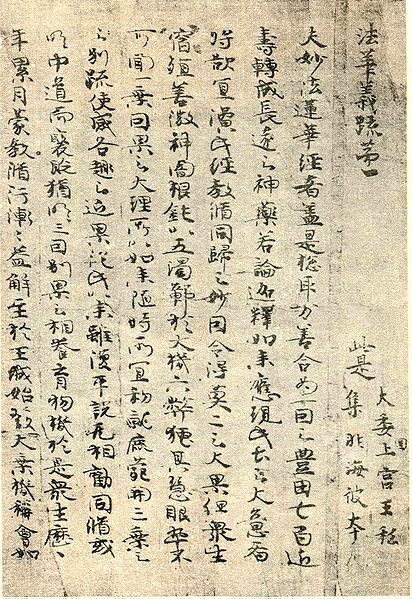 法華義疏第一
此是
大委国上宮王私
集非海彼本
夫妙法蓮華經者蓋是惣取万善合為一因之豊田七百近
壽轉成長遠之神藥若論迦釋如来應現此土之大意者
将欲宜演此經教脩同歸之妙因令得莫二之大果但衆生
宿殖善微神闇根鈍以五濁鄣於大機六弊掩其慧眼卒不
可聞一乗因果之大理所以如来随時所宜初就鹿苑開三乗之
別疏使感各趣之近果従此以来雖復平説无相勧同脩或
明中道而褒貶猶明三因別果之相養育物機於是衆生歴
年累月蒙教脩行漸漸益解至於王城始發大乗機稱會如